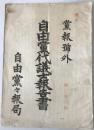 黨報號外
自由黨代議士報告書
自由黨々報局